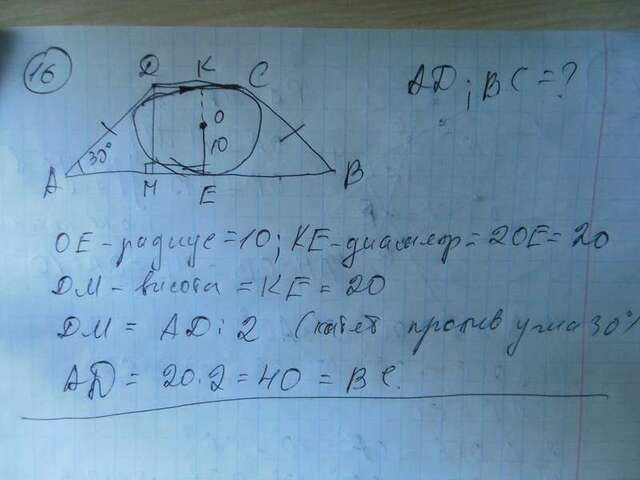 16
D K C
AD; BC = ?
O
10
30°
A M E B
OE - радиус = 10; KE - диаметр = 2OE = 20
DM - висота = KE = 20
DM = AD : 2 (катет против угла 30°)
AD = 20·2 = 40 = BC.